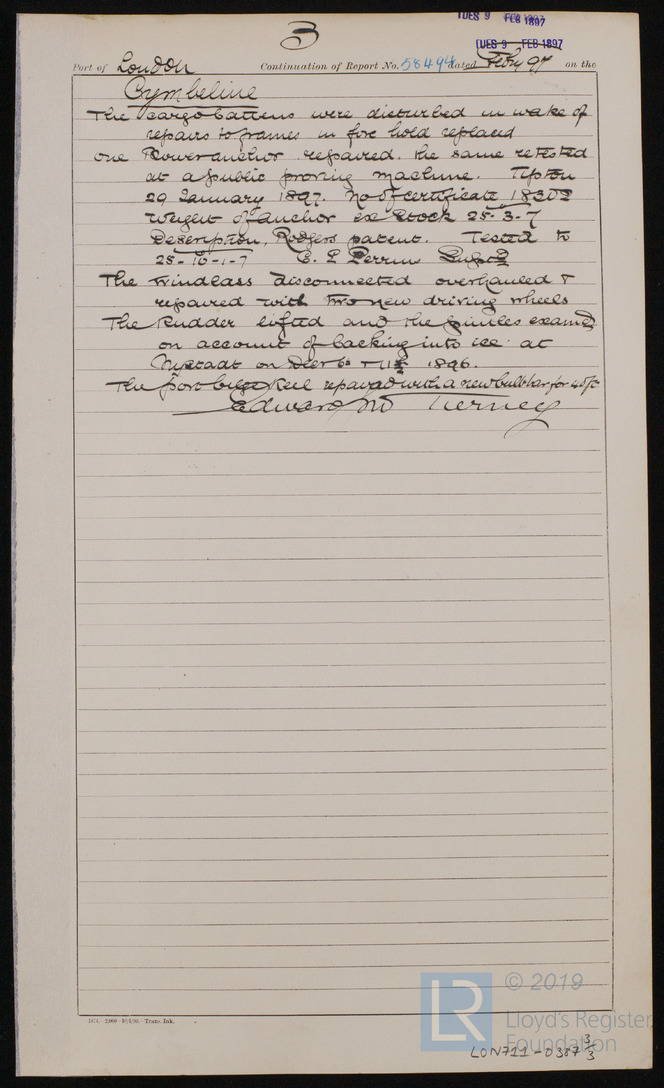 TUES 9 FEB 1897
3
TUES 9 FEB 1897
Port of London Continuation of Report No. 58494 dated Feby 97 on the
Cymbeline
The cargo battens were disturbed in wake of
repairs to frames in fore hold replaced
one Bower anchor repaired. the same retested
at a public proving machine. Tipton
29 January 1897. No of certificate 18302
weight of anchor ex Stock 25-3-7
Description, Rodgers patent. Tested to
25-16-1-7 Perrin Supt
The windlass disconnected overhauled &
repaired with two new driving wheels
The Rudder lifted and the pintles examd
on account of backing into ice at
on Decr 6th & 11th 1896.
The port bilge keel repaired with a new bulb bar for 40 ft
Edward M Tierney
Trans. Ink.
© 2019
LR Lloyd's Register
Foundation
LON711-0387 3/3